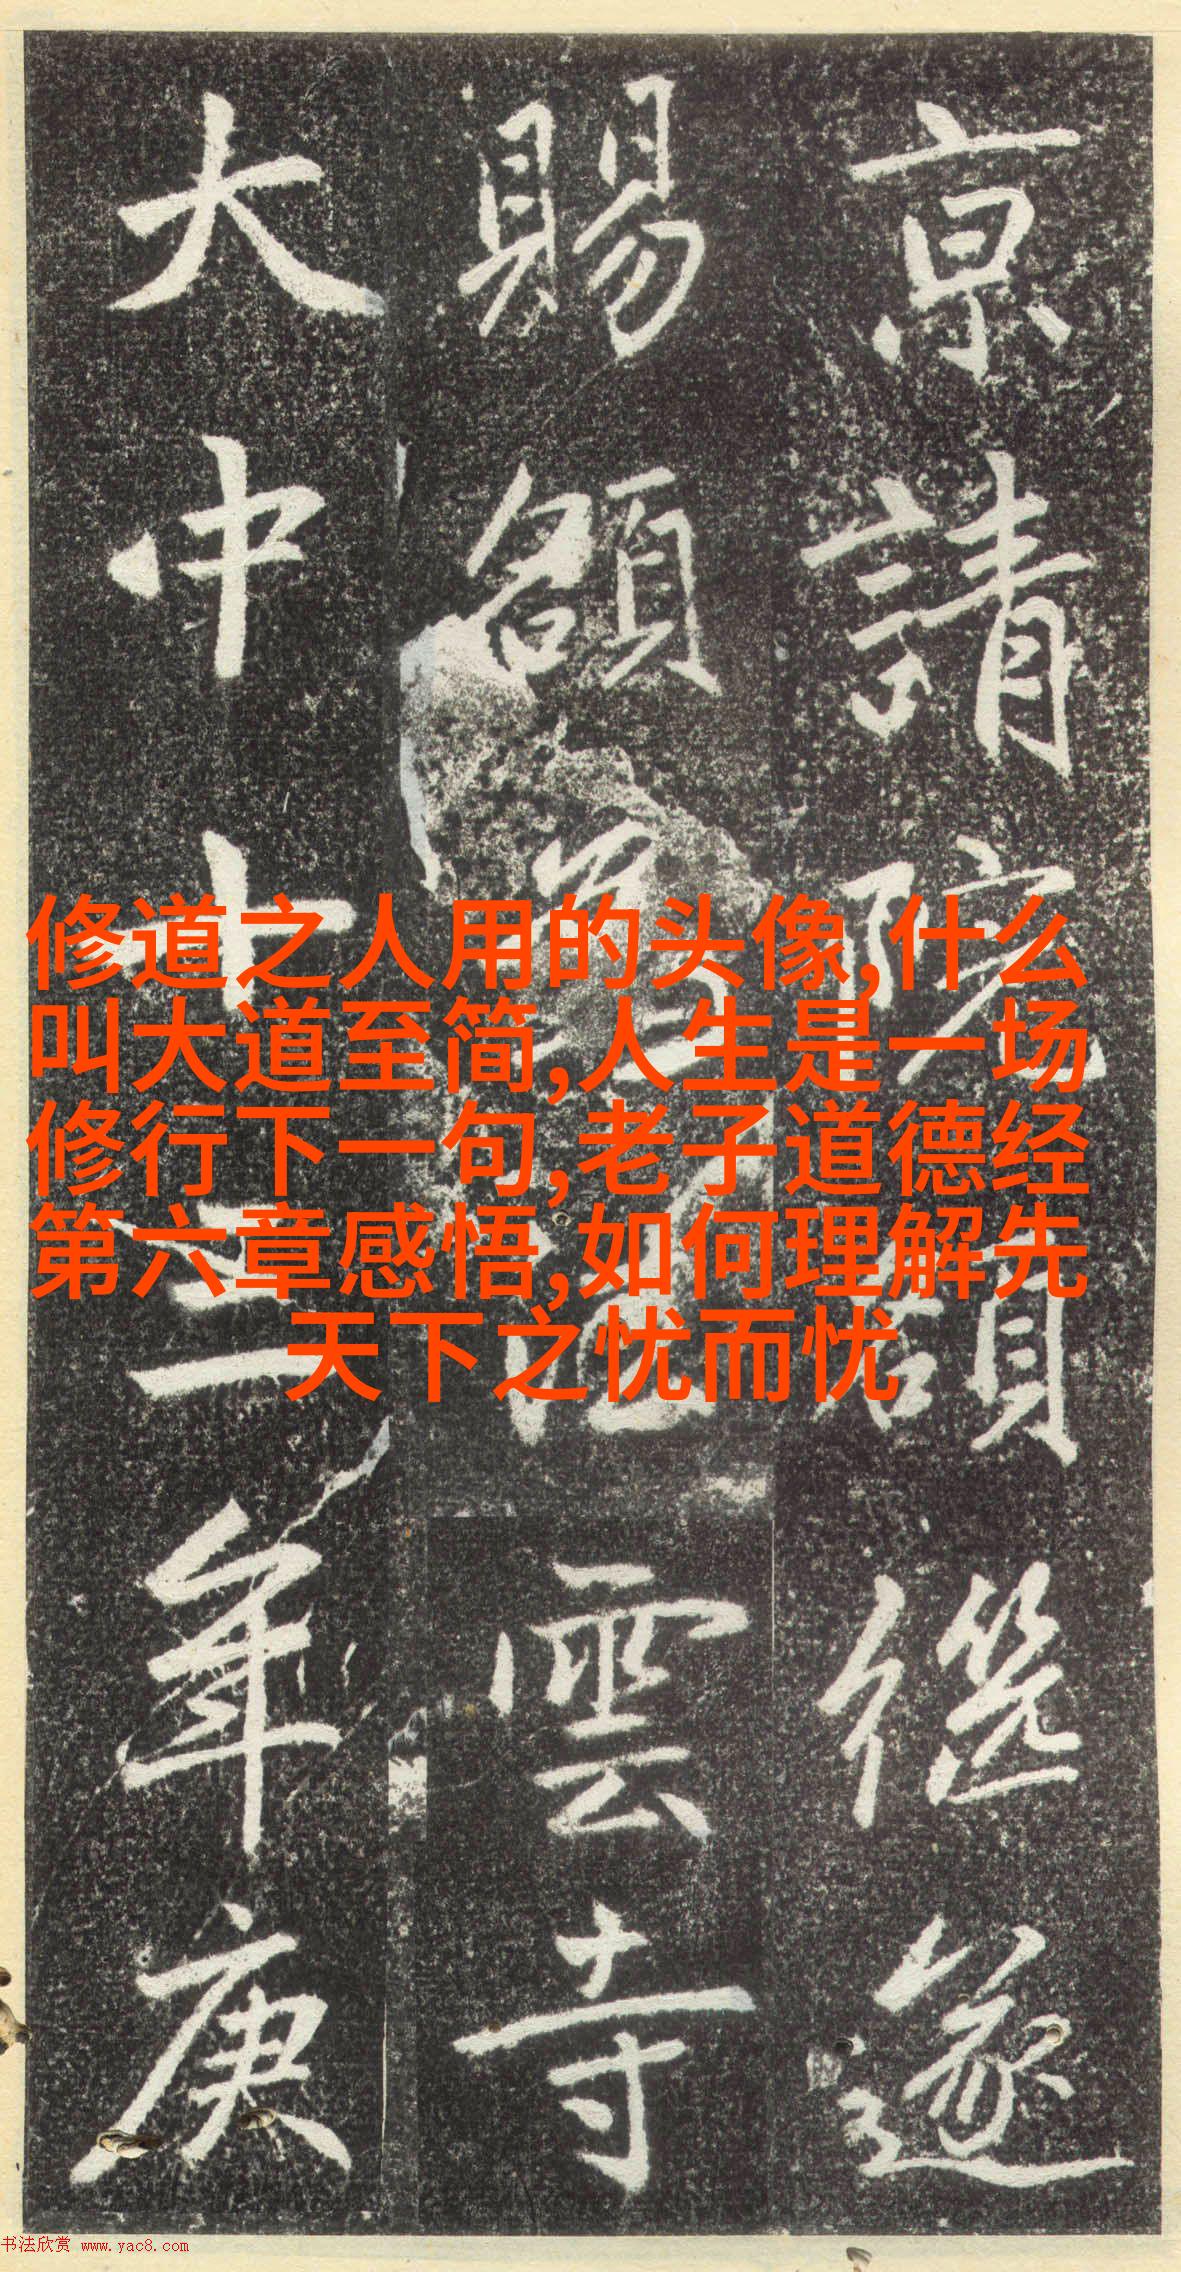 京請院額遂
賜額雲寺
大中十三年庚
修道之人用的头像,什么
叫大道至简,人生是一场
修行下一句,老子道德经
第六章感悟,如何理解先
天下之忧而忧
书法欣赏 www.yac8.com